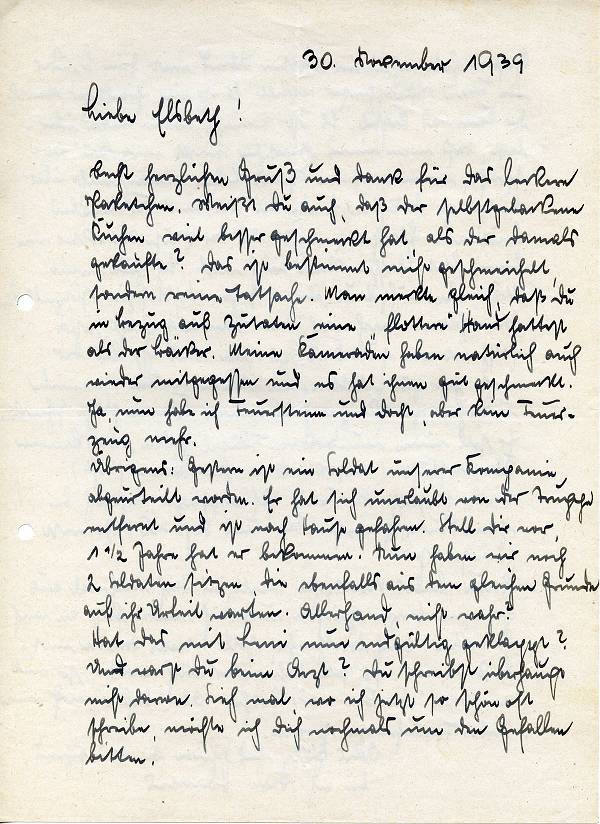 30. November 1939
Liebe Elsbeth!
Recht herzlichen Gruß und Dank für das leckere
Paketchen. Weißt Du auch, daß der selbstgebackene
Kuchen viel besser geschmeckt hat, als der damals
gekaufte? Das ist bestimmt nicht geschmeichelt,
sondern reine Tatsache. Man merkte gleich, daß Du
in bezug auf Zutaten eine "flottere" Hand hattest
als der Bäcker. Meine Kameraden haben natürlich auch
wieder mitgegessen und es hat ihnen gut geschmeckt.
Ja, nun habe ich Feuersteine und Docht, aber kein Feuer-
zeug mehr.
Übrigens: Gestern ist ein Soldat unserer Kompanie
abgeurteilt worden. Er hat sich unerlaubt von der Truppe
entfernt und ist nach Hause gefahren. Stell Dir vor,
1 1/2 Jahre hat er bekommen. Nun haben wir noch
2 Soldaten sitzen, die ebenfalls aus dem gleichen Grunde
auf ihr Urteil warten. Allerhand, nicht wahr?
Hat das mit Leni nun endgültig geklappt?
Und warst Du beim Arzt? Du schreibst überhaupt
nicht davon. Sieh mal, wo ich jetzt so schön oft
schreibe, möchte ich Dich nochmals um den Gefallen
bitten.